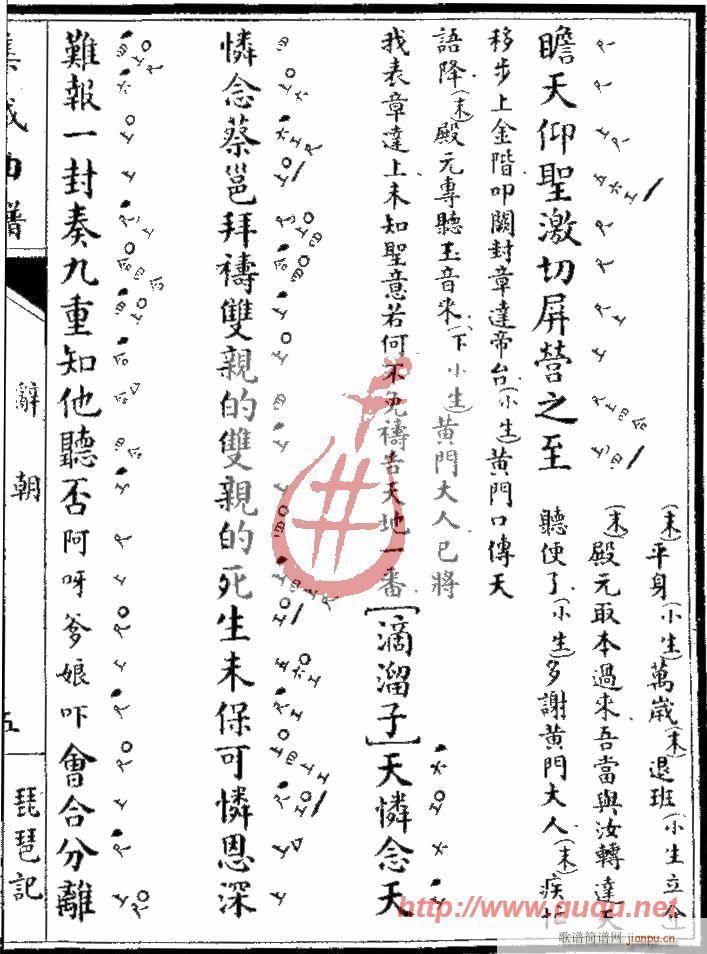 瞻天仰聖激切屏營之至
(末)平身(小生)萬歲(末)退班(小生立介
(末)殿元取本過來吾當與汝轉達天
聽便了(小生)多謝黃門大人(末)疾忙
移步上金階叩闕封章達帝台(小生)黃門口傳天
語降(末)殿元專聽玉音來(下小生)黃門大人已將
我表章達上未知聖意若何不免禱告天地一番[滴溜子]天憐念天
憐念蔡邕拜禱雙親的雙親的死生未保可憐恩深
難報一封奏九重知他聽否阿呀爹娘吓會合分離
集成曲譜
辭朝
五
琵琶記
http://www.ququ.net
歌谱简谱网 jianpu.cn